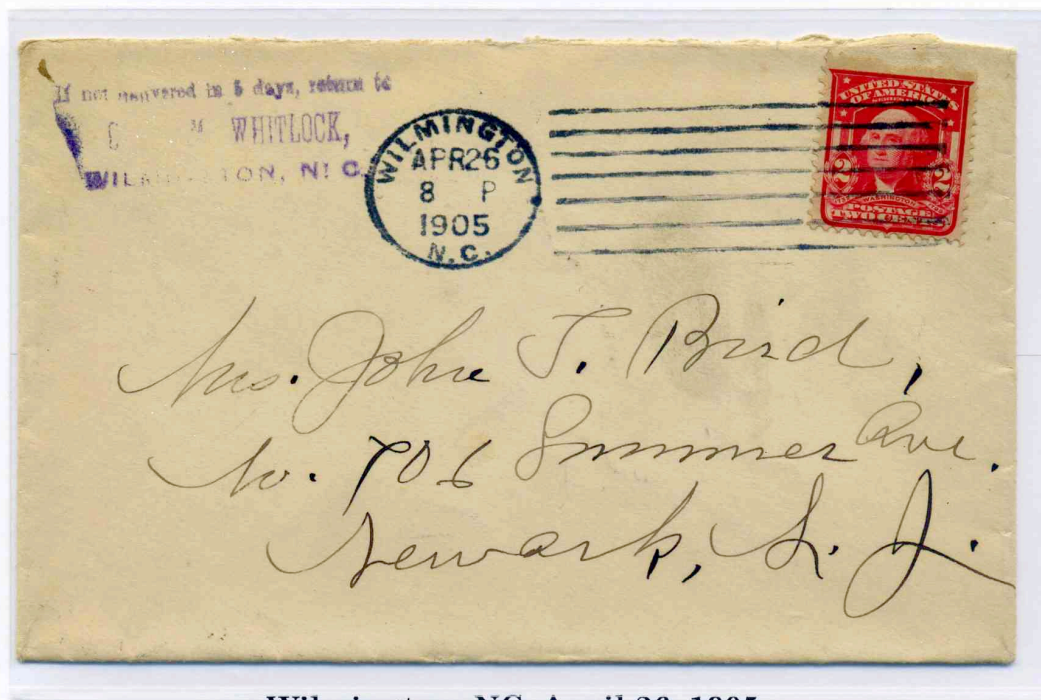 If not delivered in 5 days, return to
WHITLOCK,
WILMINGTON, N. C.
WILMINGTON
APR 26
8 P
1905
N.C.
UNITED STATES
OF AMERICA
2 2
WASHINGTON
POSTAGE
TWO CENTS
Mrs. John T. Bird,
No. 706 Summer Ave.
Newark, N. J.
Wilmington, NC, April 26, 1905